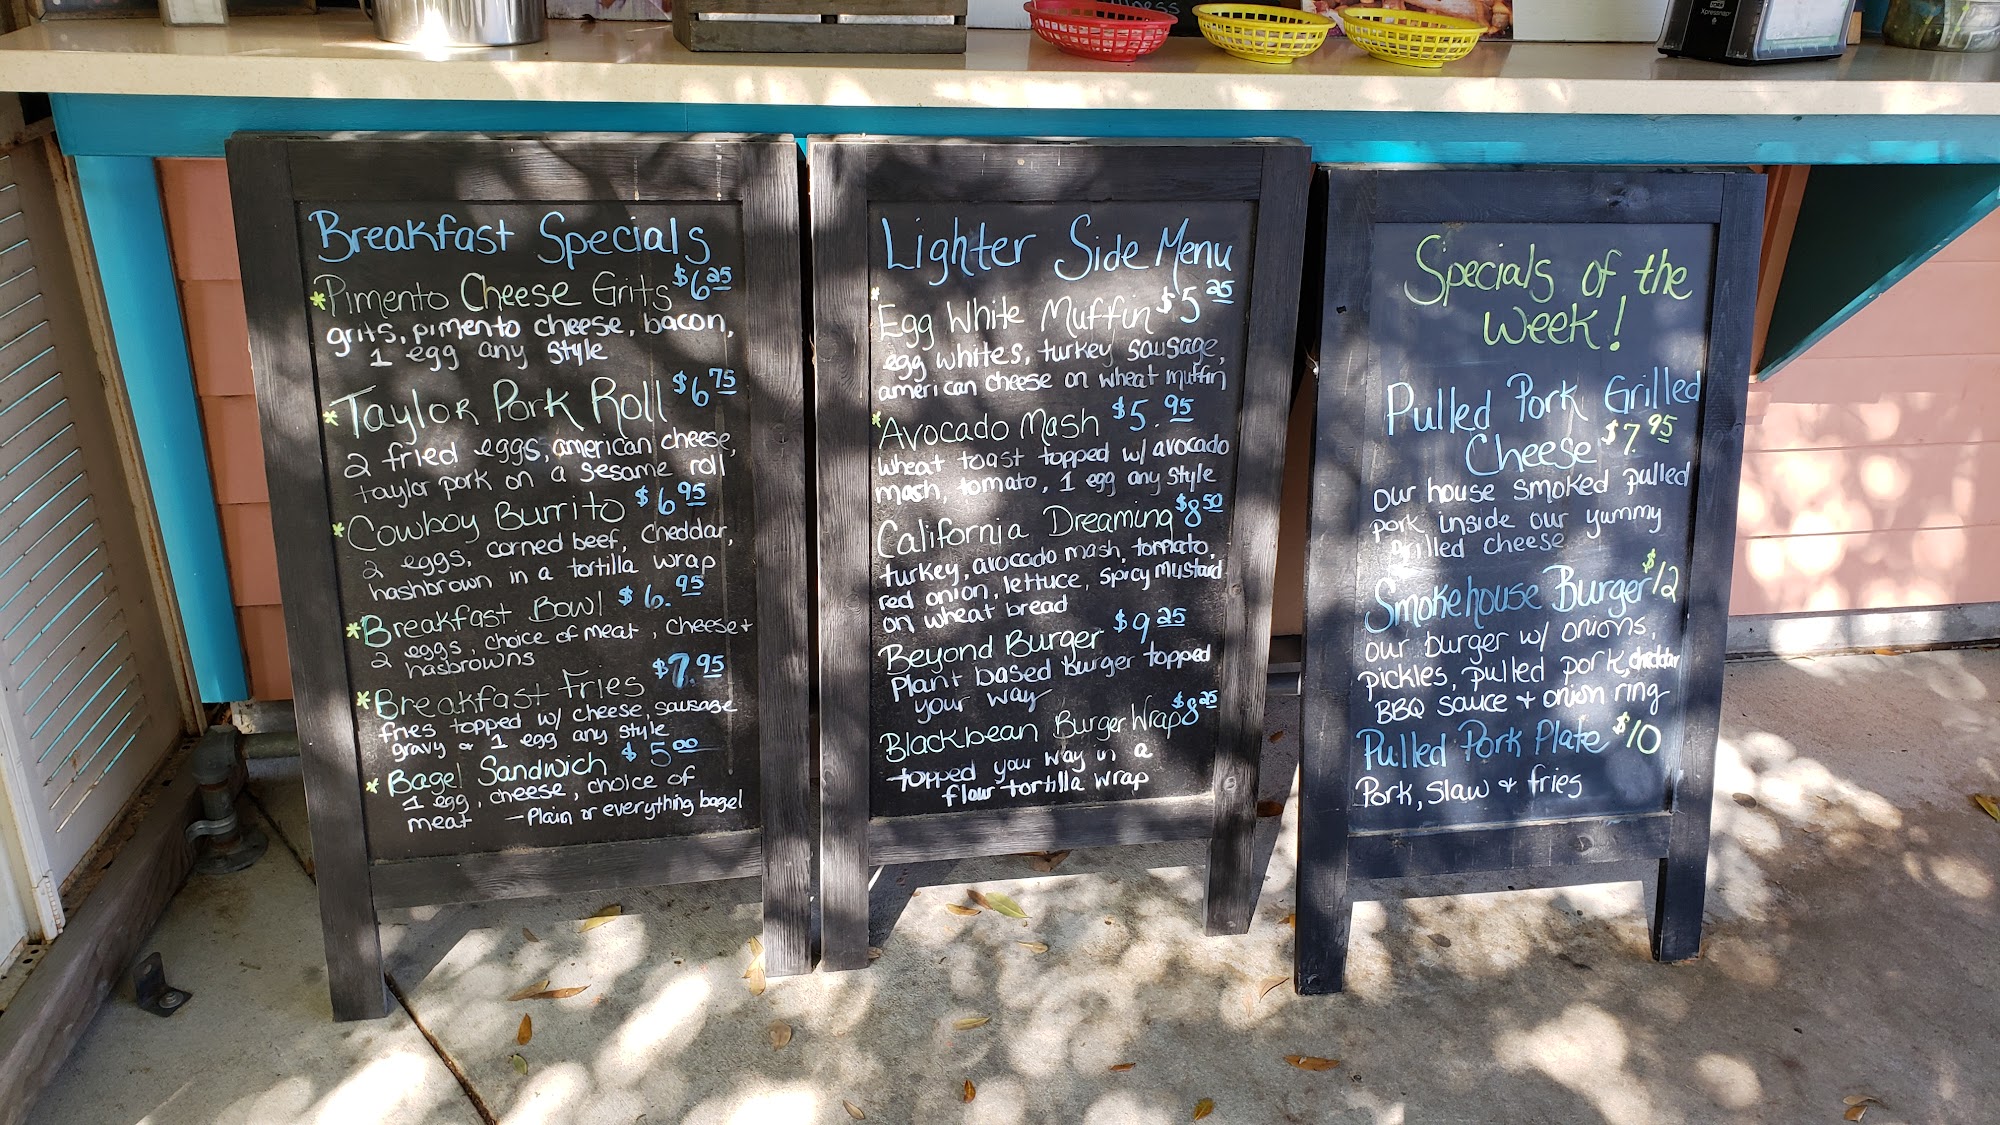 Xpressnap
Breakfast Specials
*Pimento Cheese Grits $6.25
grits, pimento cheese, bacon,
1 egg any style
*Taylor Pork Roll $6.75
2 fried eggs, american cheese,
taylor pork on a sesame roll
*Cowboy Burrito $6.95
2 eggs, corned beef, cheddar,
hashbrown in a tortilla wrap
*Breakfast Bowl $6.95
2 eggs, choice of meat, cheese +
hasbrowns
*Breakfast Fries $7.95
fries topped w/ cheese, sausage
gravy & 1 egg any style
*Bagel Sandwich $5.00
1 egg, cheese, choice of
meat - Plain or everything bagel
Lighter Side Menu
*Egg White Muffin $5.25
egg whites, turkey sausage,
american cheese on wheat muffin
*Avocado Mash $5.95
wheat toast topped w/ avocado
mash, tomato, 1 egg any style
California Dreaming $8.50
turkey, avocado mash, tomato,
red onion, lettuce, spicy mustard
on wheat bread
Beyond Burger $9.25
Plant based burger topped
your way
Blackbean Burger Wrap $8.25
topped your way in a
flour tortilla wrap
Specials of the
Week!
Pulled Pork Grilled
Cheese $7.95
our house smoked pulled
pork inside our yummy
grilled cheese
Smokehouse Burger $12
our burger w/ onions,
pickles, pulled pork, cheddar
BBQ sauce + onion ring
Pulled Pork Plate $10
Pork, slaw & fries